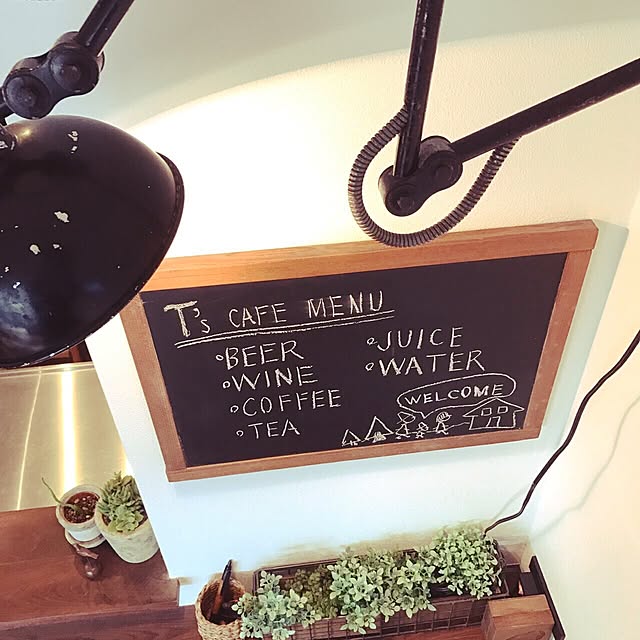 T's CAFE MENU
BEER
WINE
COFFEE
TEA
JUICE
WATER
WELCOME